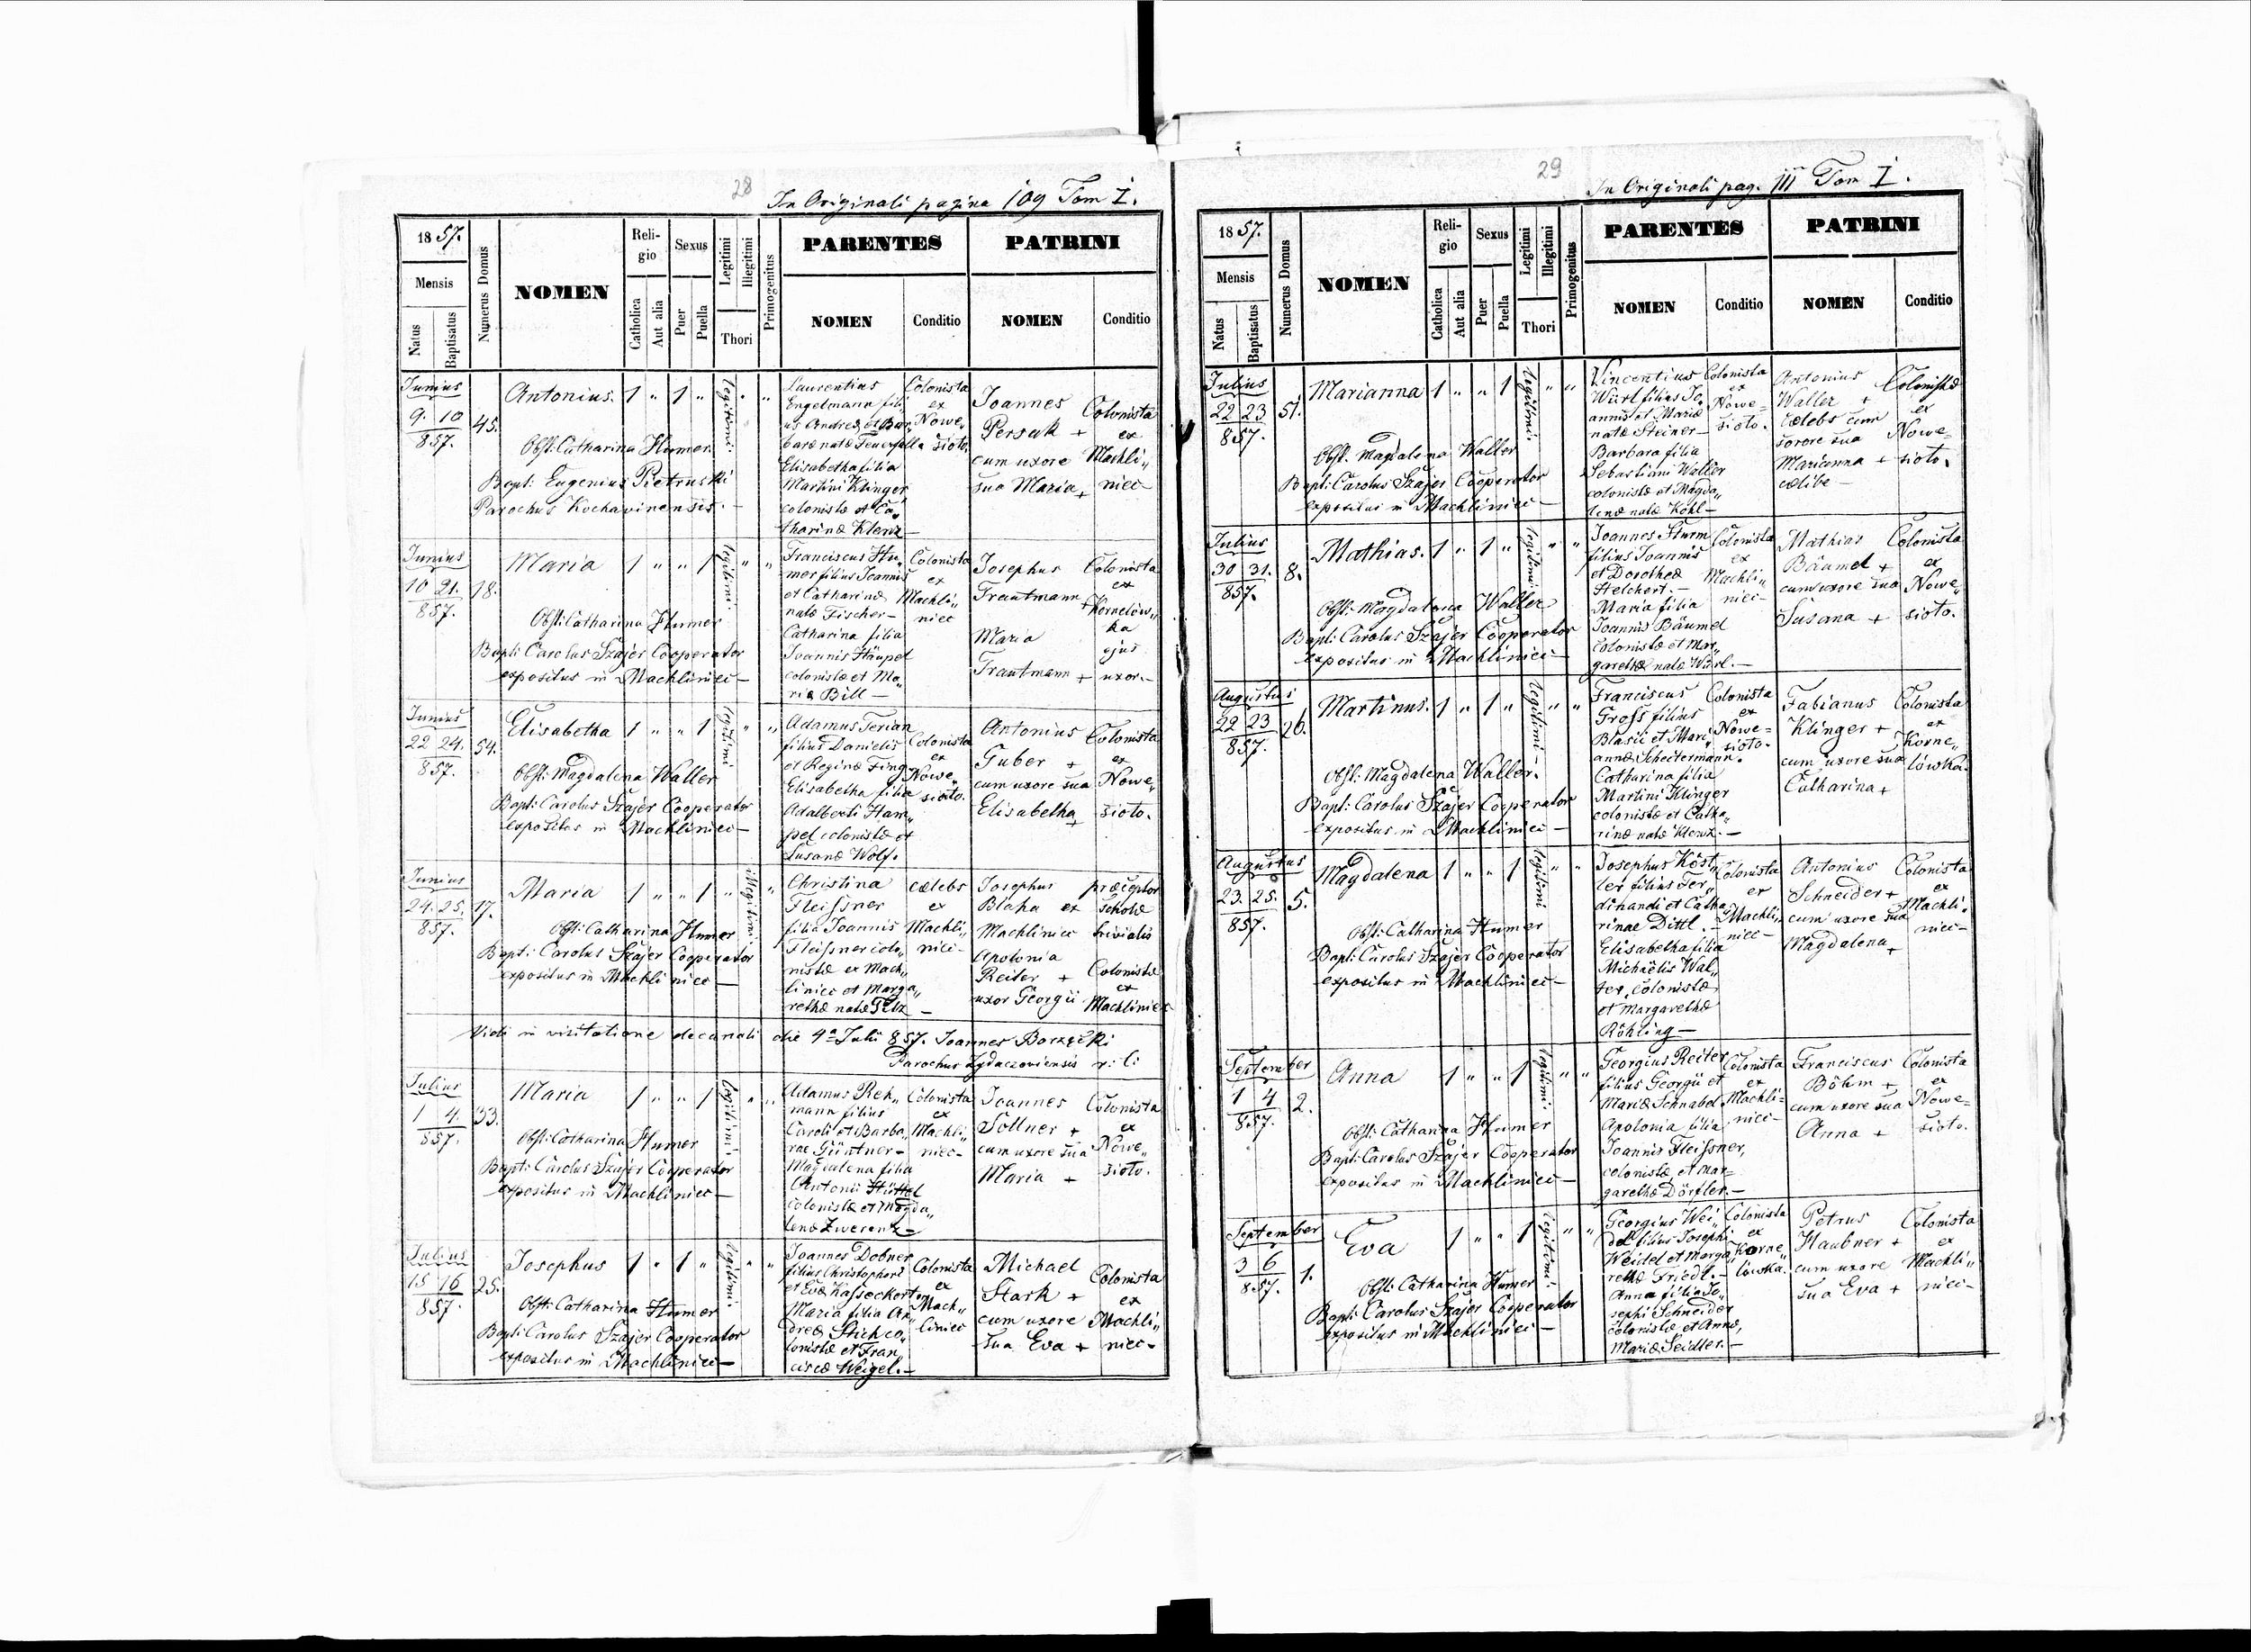 28
In Originali pagina 109 Tom I.
1857.
Mensis
Natus
Baptisatus
Numerus Domus
NOMEN
Reli-
gio
Catholica
Aut alia
Sexus
Puer
Puella
Legitimi
Illegitimi
Thori
Primogenitus
PARENTES
NOMEN
Conditio
PATRINI
NOMEN
Conditio
Junius
9. 10
857.
45.
Antonius. 1 " 1 " legitimi " "
Obst: Catharina Humer
Bapt: Eugenius Pietruski
Parochus Kochavinensis. —
Laurentius
Engelmann fili,,
us Andreæ et Bar,,
baræ natæ
Elisabetha filia
Martini Klinger
colonistæ et Ca,,
tharinæ Klenz —
Colonista
ex
Nowe,,
sioto.
Joannes
Persak +
cum uxore
sua Maria +
Colonista
ex
Machli,,
niec —
Junius
10 21.
857.
18.
Maria 1 " " 1 legitimi " "
Obst: Catharina Humer
Bapt: Carolus Szajer Cooperator
expositus in Machliniec —
Franciscus Hu,,
mer filius Joannis
et Catharinæ
natæ Fischer —
Catharina filia
Joannis Häupel
colonistæ et Ma,,
riæ Bill —
Colonista
ex
Machli,,
niec
Josephus
Trautmann +
Maria
Trautmann +
Colonista
ex
Kornelów,,
ka
ejus
uxor. —
Junius
22 24.
857.
54.
Elisabetha 1 " " 1 legitimi " "
Obst: Magdalena Waller
Bapt: Carolus Szajer Cooperator
expositus in Machliniec —
Adamus Ferian
filius Danielis
et Reginæ Fing
Elisabetha filia
Adalberti Ham,,
pel colonistæ et
Susanæ Wolf.
Colonista
ex
Nowe,,
sioto.
Antonius
Guber +
cum uxore sua
Elisabetha +
Colonista
ex
Nowe,,
sioto.
Junius
24. 25.
857.
17.
Maria 1 " " 1 " illegitimi "
Obst: Catharina Humer
Bapt: Carolus Szajer Cooperator
expositus in Machliniec —
Christina
Fleissner
filia Joannis
Fleissner colo,,
nistæ ex Mach,,
liniec et Marga,,
rethæ natæ Pelz —
cælebs
ex
Machli,,
niec —
Josephus
Blaha ex
Machliniec
Apolonia
Reiter +
uxor Georgii
præceptor
scholæ
trivialis
Colonistæ
ex
Machliniec
Vidi in visitatione decanali die 4a Julii 857. Joannes Borzęcki
Parochus Zydaczoviensis r: l:
Julius
1 4.
857.
33.
Maria 1 " " 1 legitimi " "
Obst: Catharina Humer
Bapt: Carolus Szajer Cooperator
expositus in Machliniec —
Adamus Reh,,
mann filius
Caroli et Barba,,
rae Güntner —
Magdalena filia
Antonii Hüttel
colonistæ et Magda,,
lenæ Zwerenz —
Colonista
ex
Machli,,
niec —
Joannes
Sollner +
cum uxore sua
Maria +
Colonista
ex
Nowe,,
sioto.
Julius
15 16
857.
25.
Josephus 1 " 1 " legitimi " "
Obst: Catharina Humer
Bapt: Carolus Szajer Cooperator
expositus in Machliniec —
Joannes Dobner
filius Christophori
et Evæ
Maria filia An,,
dreæ Stich co,,
lonistæ et Fran
ciscæ Weigel. —
Colonista
ex
Mach,,
liniec
Michael
Stark +
cum uxore
sua Eva +
Colonista
ex
Machli,,
niec —
29
In Originali pag. 111 Tom I.
1857.
Mensis
Natus
Baptisatus
Numerus Domus
NOMEN
Reli-
gio
Catholica
Aut alia
Sexus
Puer
Puella
Legitimi
Illegitimi
Thori
Primogenitus
PARENTES
NOMEN
Conditio
PATRINI
NOMEN
Conditio
Julius
22 23
857.
51.
Marianna 1 " " 1 legitimi " "
Obst. Magdalena Waller
Bapt: Carolus Szajer Cooperator
expositus in Machliniec —
Vincentius
Würl filius Jo,,
annis et Mariæ
natæ Steiner —
Barbara filia
Sebastiani Waller
colonistæ et Magda,,
lenæ natæ Köhl —
Colonista
ex
Nowe=
sioto.
Antonius
Waller +
cælebs cum
sorore sua
Marianna +
cælibe —
Colonistæ
ex
Nowe=
sioto.
Julius
30 31.
857.
8.
Mathias. 1 " 1 " legitimi " "
Obst: Magdalena Waller
Bapt: Carolus Szajer Cooperator
expositus in Machliniec —
Joannes Sturm
filius Joannis
et Dorotheæ
Helchert. —
Maria filia
Joannis Bäumel
colonistæ et Mar,,
garethæ natæ Würl. —
Colonista
ex
Machli,,
niec —
Mathias
Bäumel +
cum uxore sua
Susana +
Colonista
ex
Nowe,,
sioto.
Augustus
22 23
857.
26.
Martinus. 1 " 1 " legitimi " "
Obst: Magdalena Waller.
Bapt: Carolus Szajer Cooperator
expositus in Machliniec —
Franciscus
Gross filius
Blasii et Mari,,
annæ Scheitermann.
Catharina filia
Martini Klinger
colonistæ et Catha,,
rinæ natæ Klenz. —
Colonista
ex
Nowe=
sioto.
Fabianus
Klinger +
cum uxore sua
Catharina +
Colonista
ex
Korne,,
lówka.
Augustus
23. 25.
857.
5.
Magdalena 1 " " 1 legitimi " "
Obst: Catharina Humer
Bapt: Carolus Szajer Cooperator
expositus in Machliniec —
Josephus Köst,,
ler filius Fer,,
dinandi et Catha,,
rinae Dittl. —
Elisabetha filia
Michaëlis Wal,,
ter, colonistæ
et Margarethæ
Röhling —
Colonista
ex
Machli,,
niec —
Antonius
Schneider +
cum uxore sua
Magdalena +
Colonista
ex
Machli,,
niec —
September
1 4
857.
2.
Anna 1 " " 1 legitimi " "
Obst: Catharina Humer
Bapt: Carolus Szajer Cooperator
expositus in Machliniec —
Georgius Reiter
filius Georgii et
Mariæ Schnabel
Apolonia filia
Joannis Fleissner,
colonistæ et Mar=
garethæ Dörfler. —
Colonista
ex
Machli=
niec —
Franciscus
Böhm +
cum uxore sua
Anna +
Colonista
ex
Nowe=
sioto.
September
3 6
857.
1.
Eva 1 " " 1 legitimi " "
Obst: Catharina Humer
Bapt: Carolus Szajer Cooperator
expositus in Machliniec —
Georgius Wei,,
del filius Josephi
Weidel et Marga,,
rethæ Friedl. —
Anna filia Jo,,
sephi Schneider
colonistæ et Annæ,
Mariæ Seidler. —
Colonista
ex
Korne,,
lówka.
Petrus
Haubner +
cum uxore
sua Eva +
Colonista
ex
Machli,,
niec —